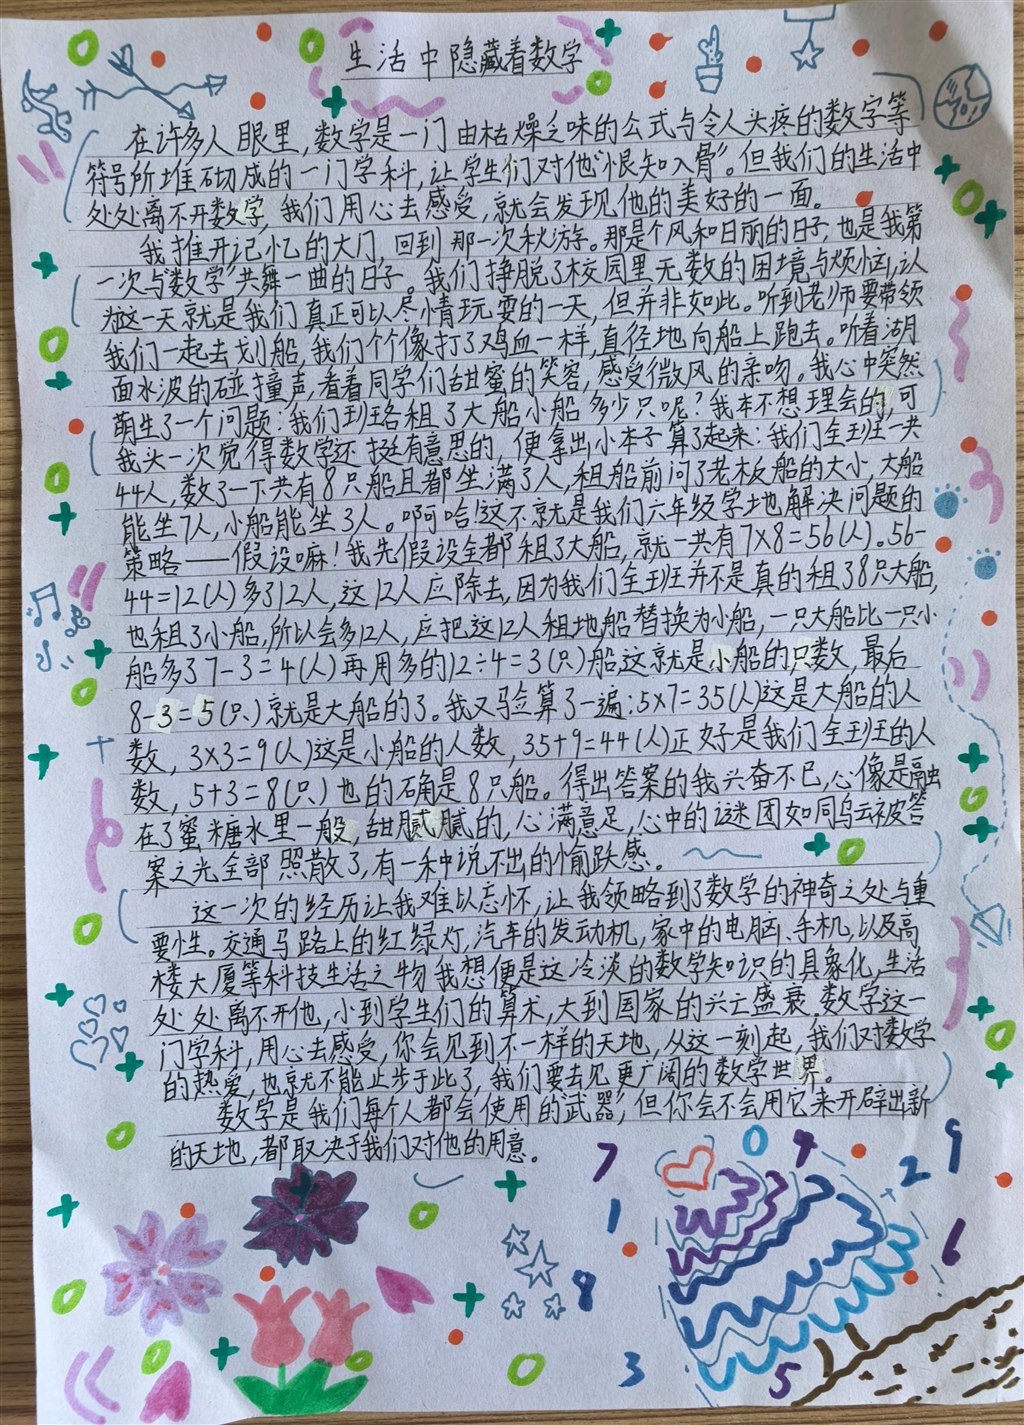 生活中隐藏着数学
在许多人眼里,数学是一门由枯燥乏味的公式与令人头疼的数字等
符号所堆砌成的一门学科,让学生们对他“恨知入骨”。但我们的生活中
处处离不开数学,我们用心去感受,就会发现他的美好的一面。
我推开记忆的大门,回到那一次秋游。那是个风和日丽的日子,也是我第
一次与“数学”共舞一曲的日子。我们挣脱了校园里无数的困境与烦恼,认
为这一天就是我们真正可以尽情玩耍的一天,但并非如此。听到老师要带领
我们一起去划船,我们个个像打了鸡血一样,直径地向船上跑去。听着湖
面水波的碰撞声,看着同学们甜蜜的笑容,感受微风的亲吻。我心中突然
萌生了一个问题:我们班各租了大船小船多少只呢?我本不想理会的,可
我头一次觉得数学还挺有意思的,便拿出小本子算了起来:我们全班一共
44人,数了一下共有8只船且都坐满了人,租船前问了老板船的大小,大船
能坐7人,小船能坐3人。啊哈!这不就是我们六年级学地解决问题的
策略——假设嘛!我先假设全都租了大船,就一共有7×8=56(人)。56-
44=12(人)多了12人,这12人应除去,因为我们全班并不是真的租了8只大船,
也租了小船,所以会多12人,应把这12人租地船替换为小船,一只大船比一只小
船多了7-3=4(人)再用多的12÷4=3(只)船这就是小船的只数,最后
8-3=5(只)就是大船的了。我又验算了一遍:5×7=35(人)这是大船的人
数,3×3=9(人)这是小船的人数,35+9=44(人)正好是我们全班的人
数,5+3=8(只)也的确是8只船。得出答案的我兴奋不已,心像是融
在了蜜糖水里一般,甜腻腻的,心满意足,心中的谜团如同乌云被答
案之光全部照散了,有一种说不出的愉跃感。
这一次的经历让我难以忘怀,让我领略到了数学的神奇之处与重
要性。交通马路上的红绿灯,汽车的发动机,家中的电脑、手机,以及高
楼大厦等科技生活之物我想便是这冷淡的数学知识的具象化,生活
处处离不开他,小到学生们的算术,大到国家的兴亡盛衰,数学这一
门学科,用心去感受,你会见到不一样的天地,从这一刻起,我们对数学
的热爱,也就不能止步于此了,我们要去见更广阔的数学世界。
数学是我们每个人都会使用的武器,但你会不会用它来开辟出新
的天地,都取决于我们对他的用意。
0
4
2
9
7
1
6
8
3
5